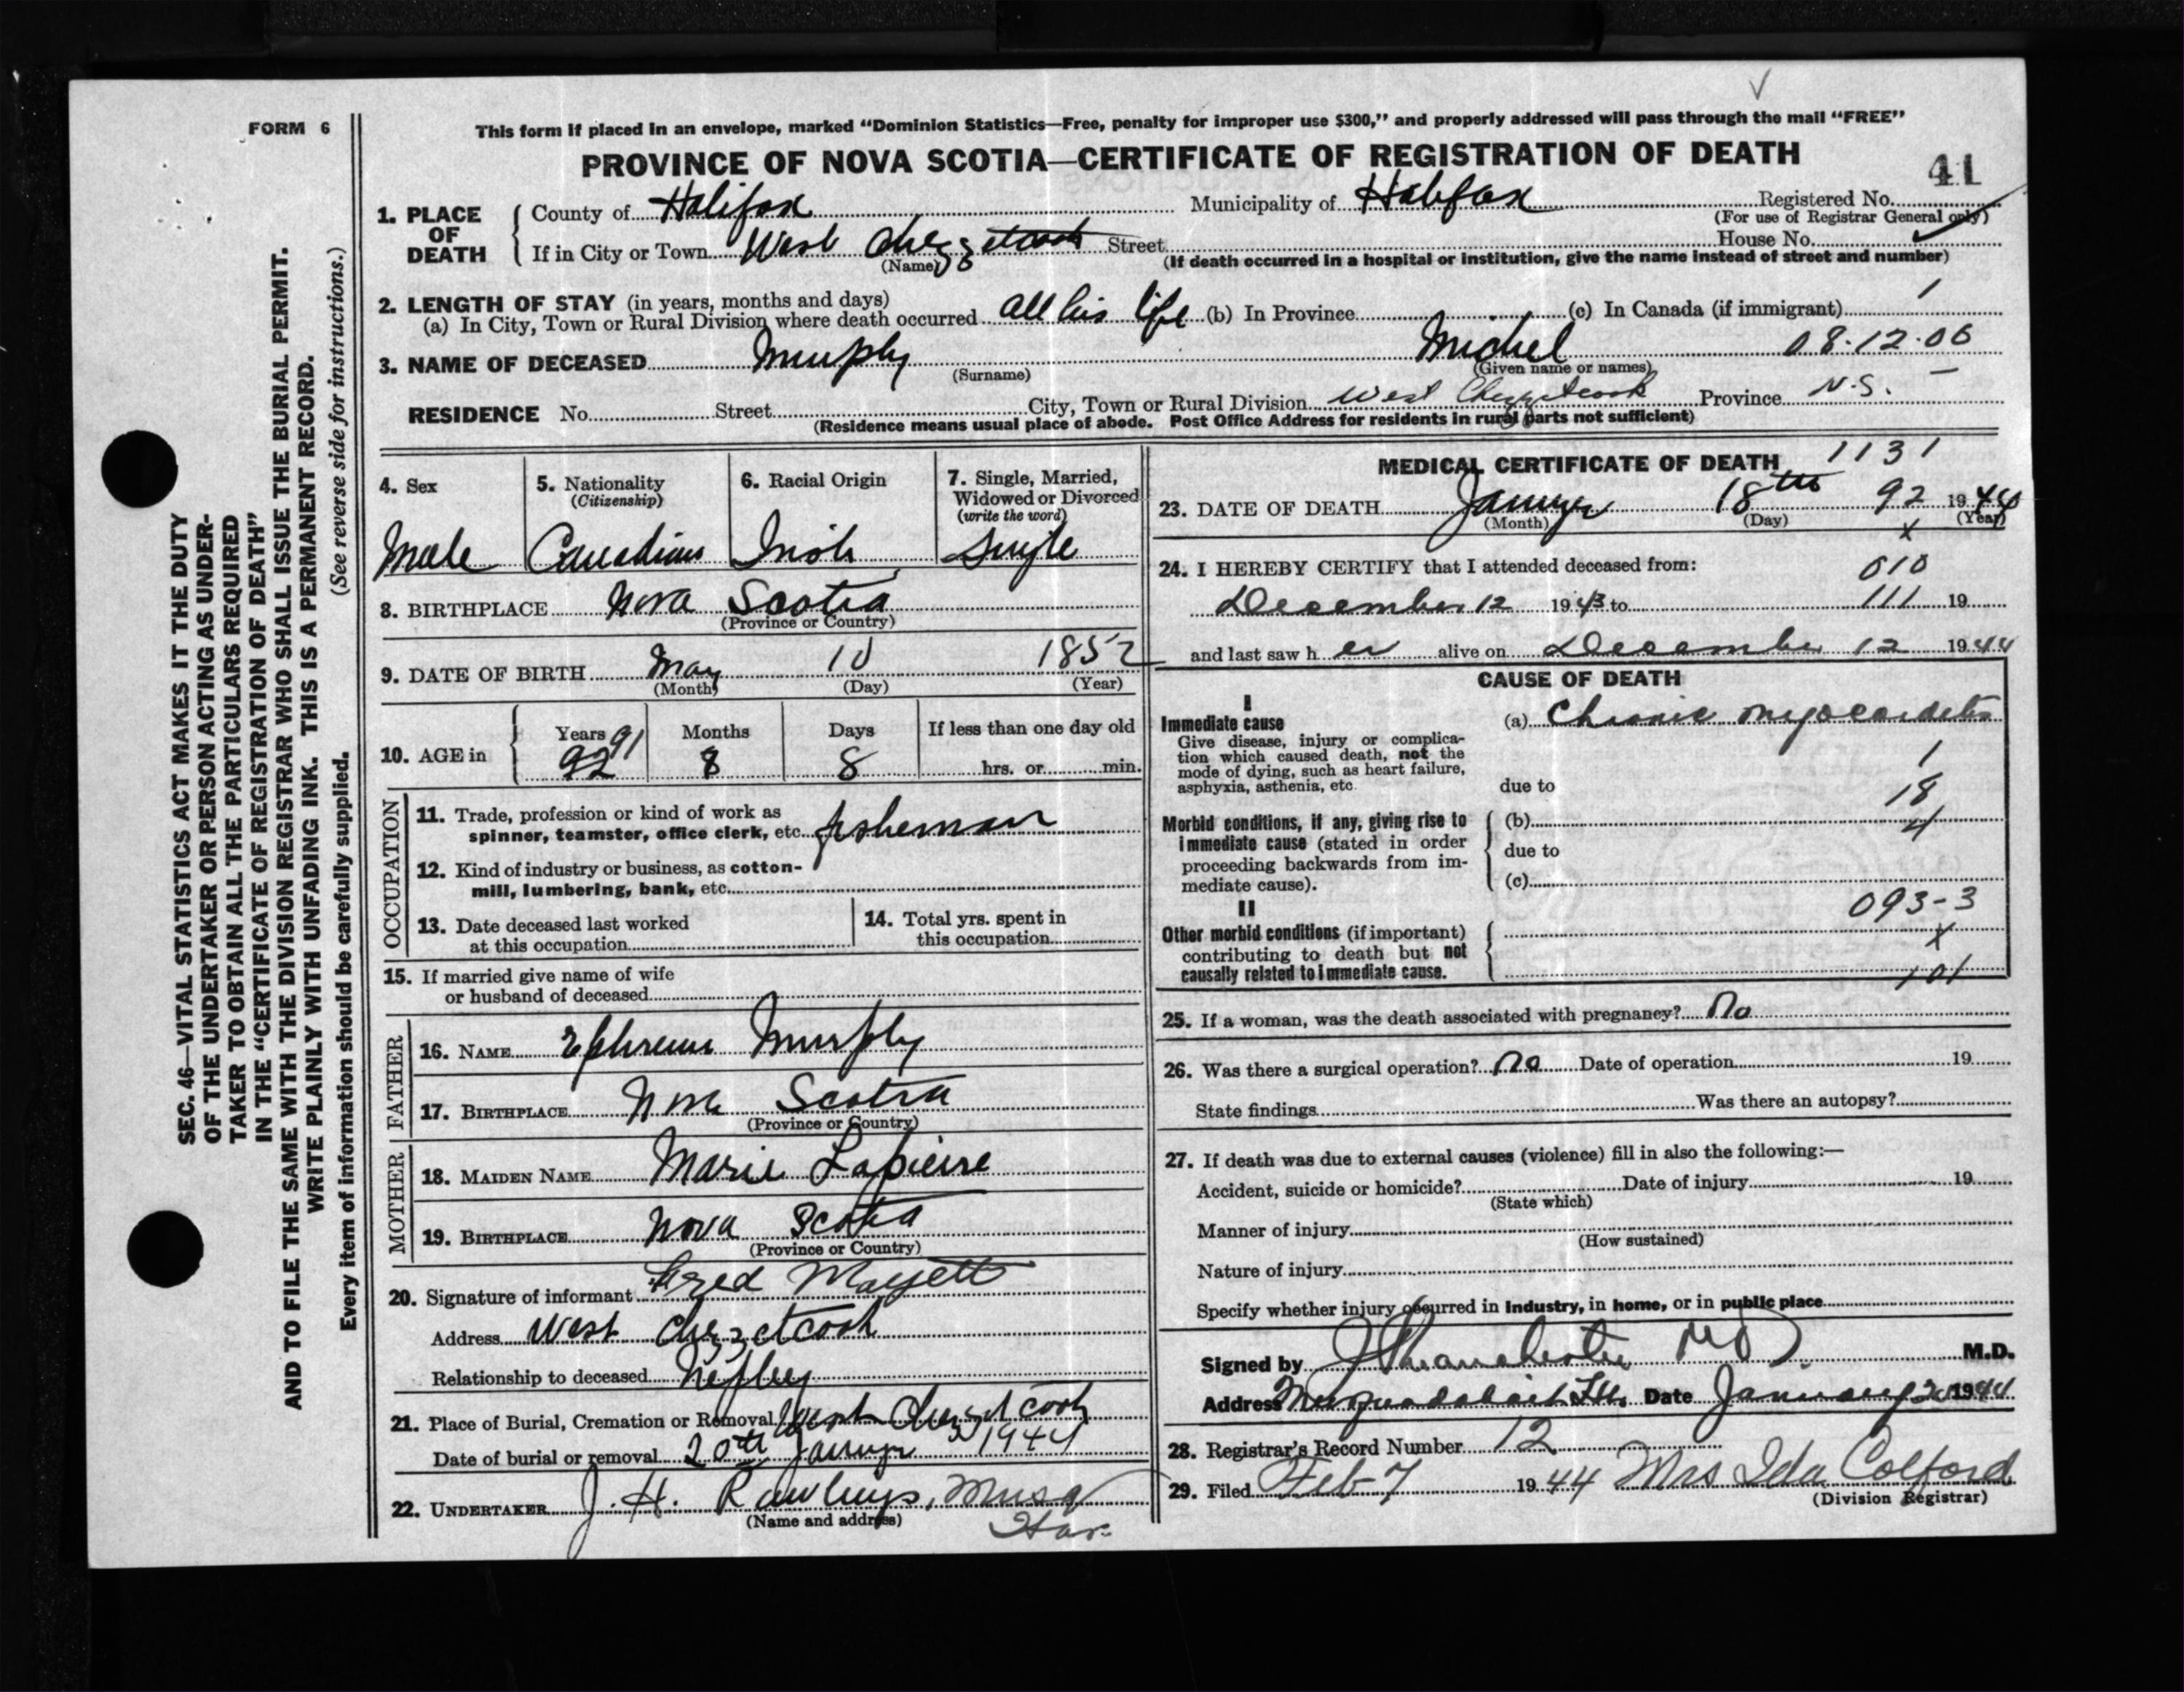 FORM 6
This form if placed in an envelope, marked “Dominion Statistics—Free, penalty for improper use $300,” and properly addressed will pass through the mail “FREE”
PROVINCE OF NOVA SCOTIA—CERTIFICATE OF REGISTRATION OF DEATH
41
1. PLACE OF DEATH
County of Halifax Municipality of Halifax Registered No.
(For use of Registrar General only)
If in City or Town West Chezzetcook Street House No.
(Name) (If death occurred in a hospital or institution, give the name instead of street and number)
2. LENGTH OF STAY (in years, months and days)
(a) In City, Town or Rural Division where death occurred all his life (b) In Province (c) In Canada (if immigrant) 1
3. NAME OF DECEASED Murphy Michel 08.12.06
(Surname) (Given name or names)
RESIDENCE No. Street City, Town or Rural Division West Chezzetcook Province N.S. –
(Residence means usual place of abode. Post Office Address for residents in rural parts not sufficient)
4. Sex
Male
5. Nationality
(Citizenship)
Canadian
6. Racial Origin
Irish
7. Single, Married,
Widowed or Divorced
(write the word)
Single
8. BIRTHPLACE Nova Scotia
(Province or Country)
9. DATE OF BIRTH May 10 1852
(Month) (Day) (Year)
10. AGE in
Years Months Days If less than one day old
92 91 8 8 hrs. or min.
OCCUPATION
11. Trade, profession or kind of work as
spinner, teamster, office clerk, etc. fisherman
12. Kind of industry or business, as cotton-
mill, lumbering, bank, etc.
13. Date deceased last worked
at this occupation
14. Total yrs. spent in
this occupation
15. If married give name of wife
or husband of deceased
FATHER
16. NAME Murphy
17. BIRTHPLACE Nova Scotia
(Province or Country)
MOTHER
18. MAIDEN NAME Marie Lapierre
19. BIRTHPLACE Nova Scotia
(Province or Country)
20. Signature of informant Fred Mayett
Address West Chezzetcook
Relationship to deceased Nefley
21. Place of Burial, Cremation or Removal West Chezzetcook
Date of burial or removal 20th 1944
22. UNDERTAKER J. H. Rawlings, Musq
Har.
(Name and address)
MEDICAL CERTIFICATE OF DEATH 1131
23. DATE OF DEATH 18th 92 1944
(Month) (Day) x (Year)
24. I HEREBY CERTIFY that I attended deceased from: 010
December 12 1943 to 111 19
and last saw h er alive on December 12 1944
CAUSE OF DEATH
I
Immediate cause
Give disease, injury or complica-
tion which caused death, not the
mode of dying, such as heart failure,
asphyxia, asthenia, etc.
(a) Chronic myocarditis
1
due to 18
Morbid conditions, if any, giving rise to
immediate cause (stated in order
proceeding backwards from im-
mediate cause).
(b) 4
due to
(c)
093-3
II
Other morbid conditions (if important)
contributing to death but not
causally related to immediate cause.
x
101
25. If a woman, was the death associated with pregnancy? No
26. Was there a surgical operation? no Date of operation 19
State findings Was there an autopsy?
27. If death was due to external causes (violence) fill in also the following:—
Accident, suicide or homicide? Date of injury 19
(State which)
Manner of injury
(How sustained)
Nature of injury
Specify whether injury occurred in industry, in home, or in public place
Signed by MD M.D.
Address Musquodoboit Date January 1944
28. Registrar's Record Number 12
29. Filed Feb 7 1944 Mrs Ida Colford
(Division Registrar)
SEC. 46—VITAL STATISTICS ACT MAKES IT THE DUTY
OF THE UNDERTAKER OR PERSON ACTING AS UNDER-
TAKER TO OBTAIN ALL THE PARTICULARS REQUIRED
IN THE “CERTIFICATE OF REGISTRATION OF DEATH”
AND TO FILE THE SAME WITH THE DIVISION REGISTRAR WHO SHALL ISSUE THE BURIAL PERMIT.
WRITE PLAINLY WITH UNFADING INK. THIS IS A PERMANENT RECORD.
Every item of information should be carefully supplied. (See reverse side for instructions.)